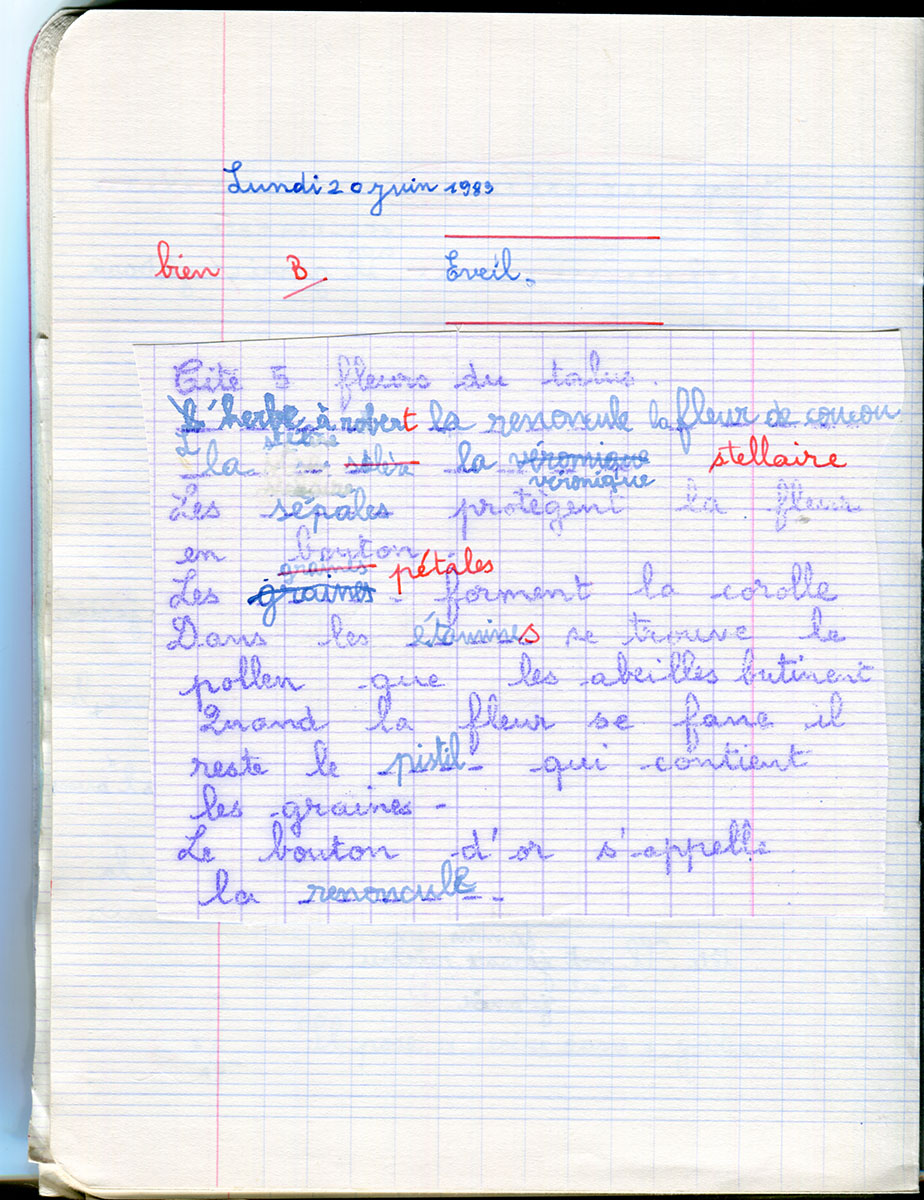 Lundi 20 juin 1983
bien B Eveil.
Cite 5 fleurs du talus.
L'herbe à robert la renoncule la fleur de coucou
la stère la véronique stellaire
véronique
Les sépales protègent la fleur
en bouton
graines pétales
Les graines - forment la corolle
Dans les étamines se trouve le
pollen que les abeilles butinent
Quand la fleur se fane il
reste le pistil - qui contient
les graines -
Le bouton d'or s'appelle
la renoncule - -